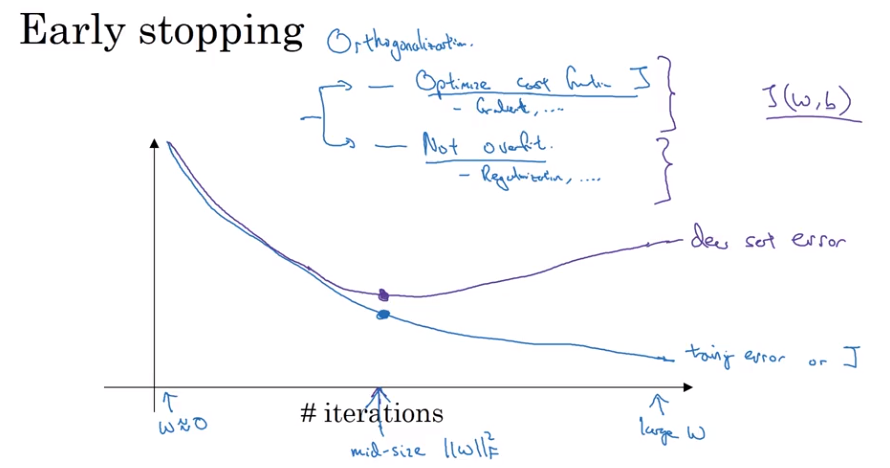 Early stopping
Orthogonalization.
— Optimize cost function J
- Gradient, ....
J(w,b)
— Not overfit.
- Regularization, ....
dev set error
training error or J
# iterations
w≈0
mid-size ||w||²_F
large w